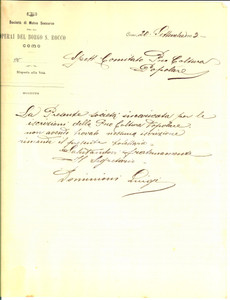 Società di Mutuo Soccorso
OPERAI DEL BORGO S. ROCCO
COMO
N.
Risposta alla Nota
Spett. Comitato Pro Coltura
Popolare
La Presente società incaricata per le
iscrizioni della Pro Coltura Popolare
non avendo trovato nessuna iscrizione
rimette il presente
Il Segretario
Dominioni Luigi